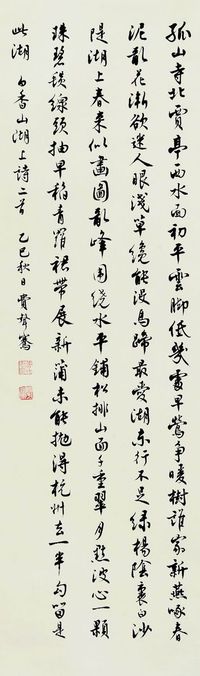 孤山寺北賈亭西水面初平雲脚低幾處早鶯爭暖樹誰家新燕啄春
泥亂花漸欲迷人眼淺草纔能沒馬蹄最愛湖東行不足綠楊陰裏白沙
隄湖上春來似畫圖亂峰圍繞水平鋪松排山面千重翠月點波心一顆
珠碧毯綫頭抽早稻青羅裙帶展新蒲未能拋得杭州去一半勾留是
此湖 白香山湖上詩二首 乙巳秋日費聲騫